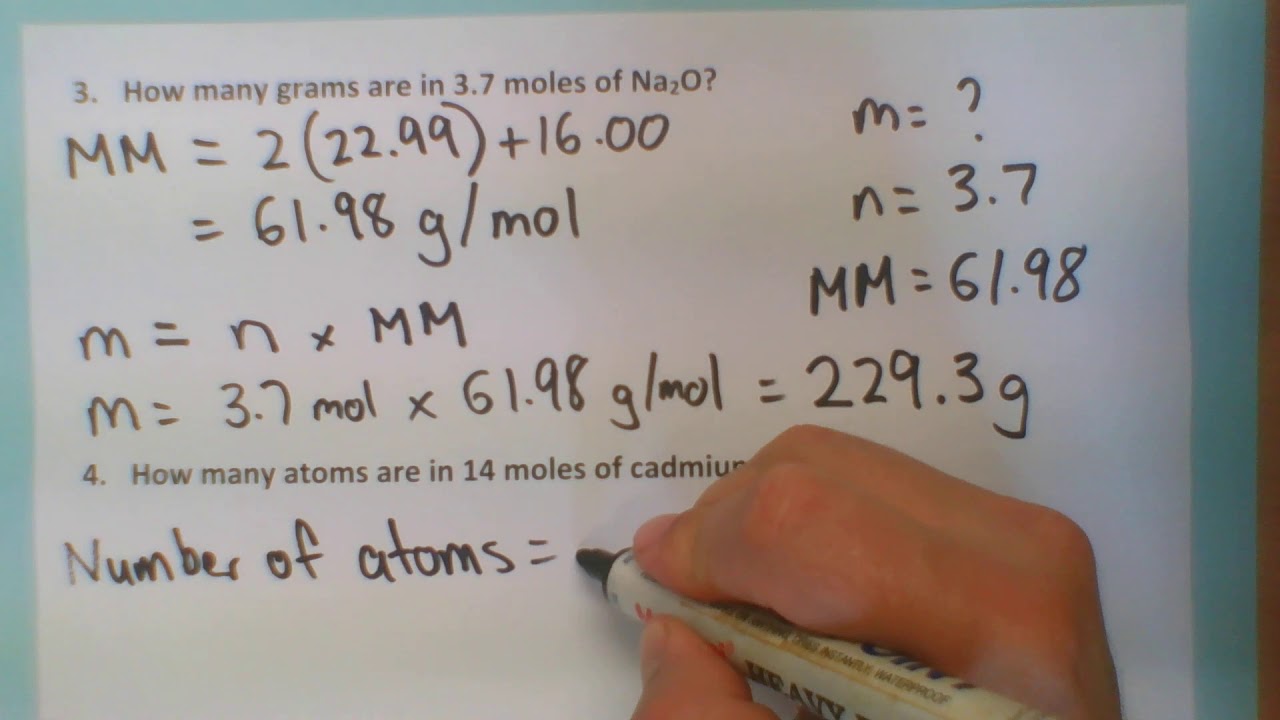 3. How many grams are in 3.7 moles of Na₂O?
MM = 2(22.99) + 16.00
= 61.98 g/mol
m = ?
n = 3.7
MM = 61.98
m = n × MM
m = 3.7 mol × 61.98 g/mol = 229.3g
4. How many atoms are in 14 moles of
Number of atoms =
HEAVY
WATERPROOF